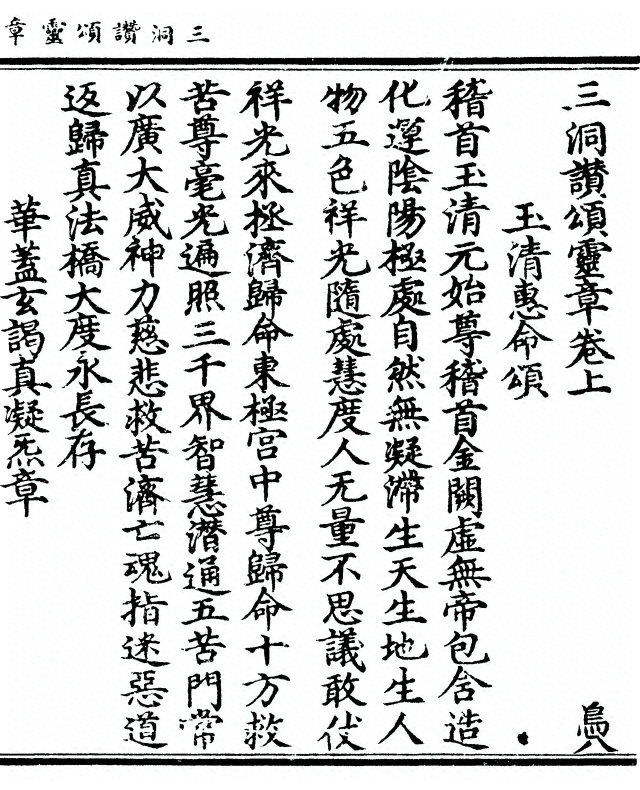 三洞讚頌靈章
三洞讚頌靈章卷上
鳥八
玉清惠命頌
稽首玉清元始尊稽首金闕虛無帝包含造
化運陰陽極處自然無凝滯生天生地生人
物五色祥光隨處慧度人无量不思議敢伏
祥光來拯濟歸命東極宮中尊歸命十方救
苦尊毫光遍照三千界智慧潛通五苦門常
以廣大威神力慈悲救苦濟亡魂指迷惡道
返歸真法橋大度永長存
華蓋玄謁真凝炁章